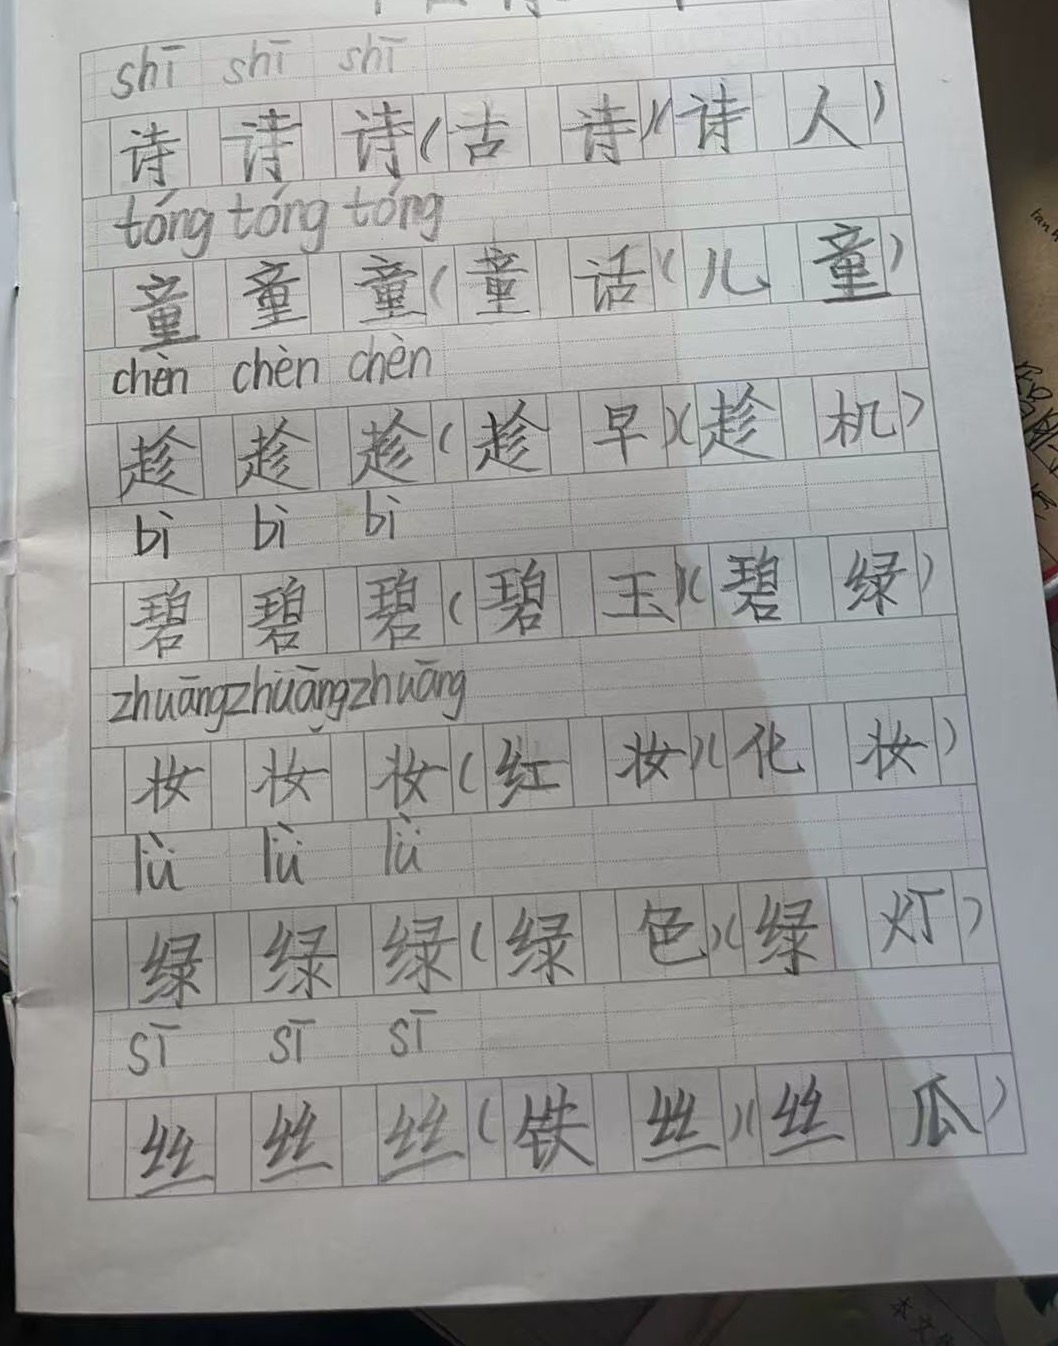 shī shī shī
诗 诗 诗(古 诗)(诗 人)
tóng tóng tóng
童 童 童(童 话(儿 童)
chèn chèn chèn
趁 趁 趁(趁 早)(趁 机)
bì bì bì
碧 碧 碧(碧 玉)(碧 绿)
zhuāngzhuāngzhuāng
妆 妆 妆(红 妆)(化 妆)
lǜ lǜ lǜ
绿 绿 绿(绿 色)(绿 灯)
sī sī sī
丝 丝 丝(铁 丝)(丝 瓜)
本文